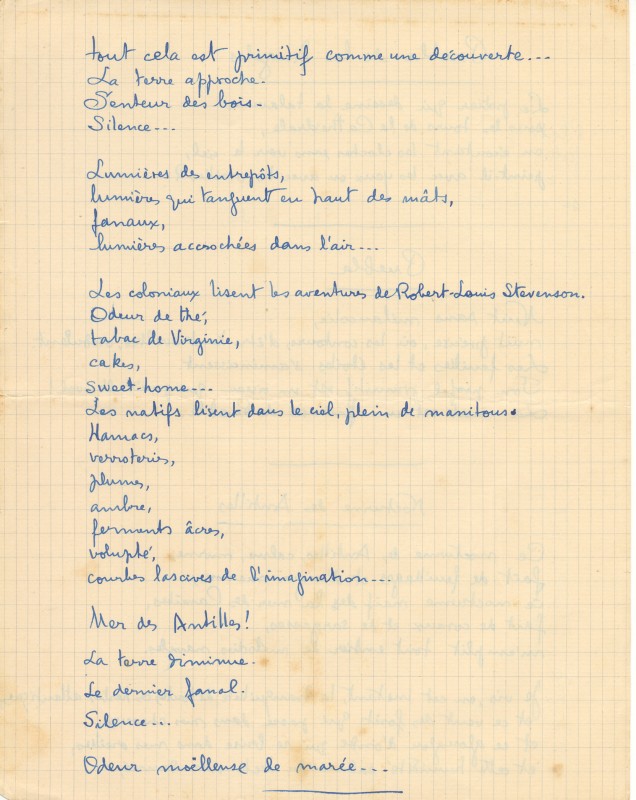 tout cela est primitif comme une découverte...
La terre approche.
Senteur des bois.
Silence...
Lumières des entrepôts,
lumières qui tanguent en haut des mâts,
fanaux,
lumières accrochées dans l'air...
Les coloniaux lisent les aventures de Robert-Louis Stevenson.
Odeur de thé,
tabac de Virginie,
cakes,
sweet-home...
Les natifs lisent dans le ciel, plein de manitous.
Hamacs,
verroteries,
plumes,
ambre,
ferments âcres,
volupté,
courbes lascives de l'imagination...
Mer des Antilles!
La terre diminue.
Le dernier fanal.
Silence...
Odeur moëlleuse de marée...